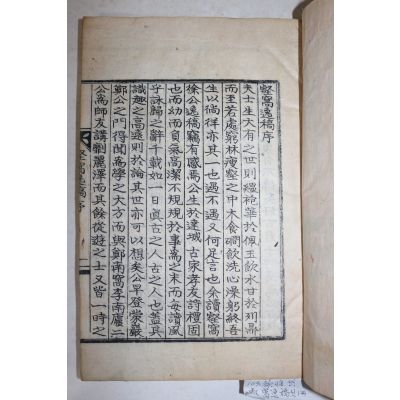 壑窩逸稿序
夫士生大有之世則縕袍華於佩玉飮水甘於列鼎
而至若處窮林瘦壑之中木食磵飮洗心澡躬終吾
生以徜徉亦其一也遇不遇又何足言也余讀壑窩
徐公逸稿竊有感焉公生於達城古家孝友詩禮固
也而幼而自氣高潔不規規於事爲之末而每讀風
乎詠歸之辭千載如一日眞古之人古之人也蓋其
識趣之高逸則於論其世亦可以想矣公早登棠巖
鄭公之門得聞爲學之大方而與鄭南窩李南廬二
公爲師友講劘麗澤而其餘從遊之士又皆一時之
壑窩逸稿序